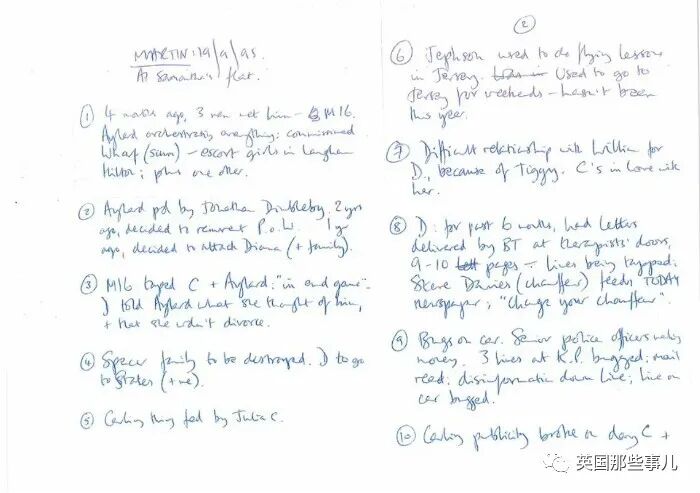 MARTIN: 19/9/95
At Samantha's flat.
① 4 months ago, 3 men met him – MI6
Aylard orchestrating everything: commissioned
Wharf (Sun) – escort girls in Langham
Hilton; plus one other.
② Aylard pd by Jonathan Dimbleby. 2 yrs
ago, decided to P.o.W. 1 yr
ago, decided to attack Diana (+ family).
③ MI6 taped C + Aylard: "in end game".
D told Aylard what she thought of him,
+ that she wdn't divorce.
④ Spencer family to be destroyed. D to go
to States (+ me).
⑤ Carling thing fed by Julia C.
②
⑥ Jephson used to do flying lessons
in Jersey. Used to go to
Jersey for weekends – hasn't been
this year.
⑦ Difficult relationship with William for
D, because of Tiggy. C's in love with
her.
⑧ D: for past 6 months, had letters
delivered by BT at therapists' doors,
9-10 pages – lines being tapped:
Steve Davies (chauffeur) feeds TODAY
newspaper; "Change your chauffeur"
⑨ Bugs on car. Senior police officers making
money. 3 lines at K.P. bugged; mail
read; disinformation down line; line on
car bugged.
⑩ Carling publicity broke on day C +
英国那些事儿